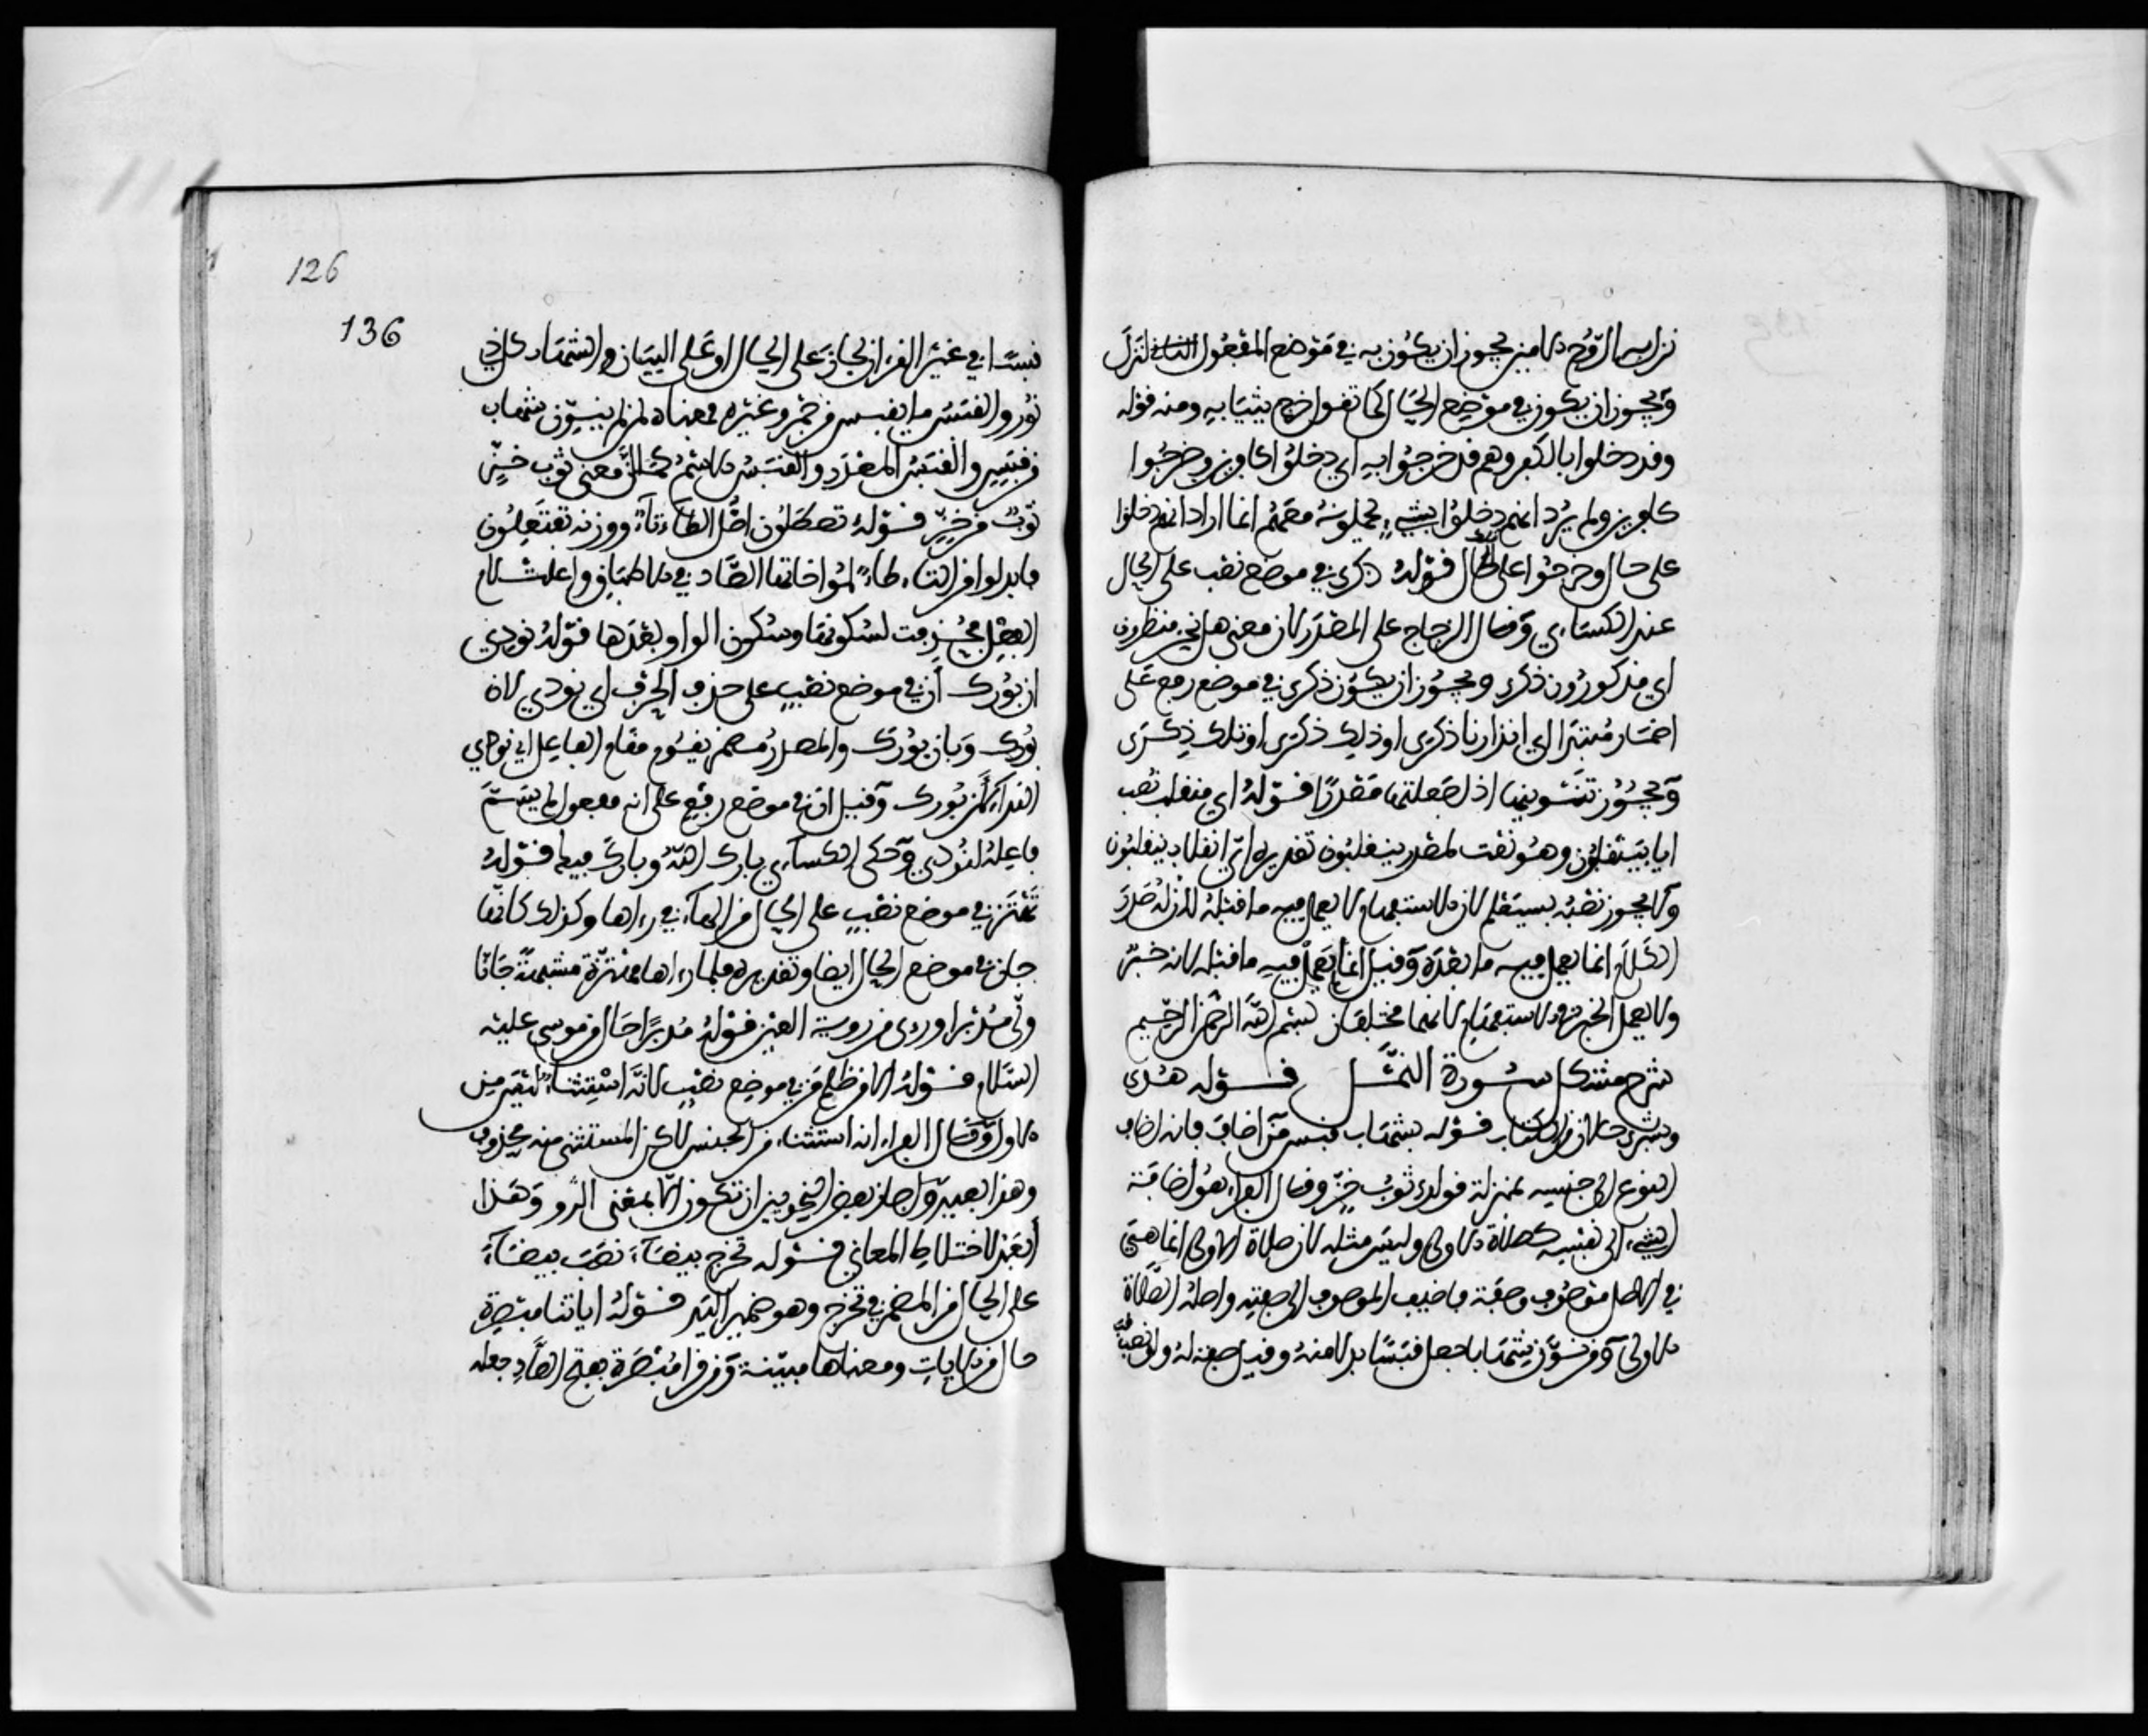 نزل به الروح الامين يجوز ان يكون به في موضع المفعول لنزل
ويجوز ان يكون في موضع الحال كما تقول خرج بثيابه ومنه قوله
وقد دخلوا بالكفر وهم قد خرجوا به اي دخلوا كافرين وخرجوا
كافرين ولم يرد انهم دخلوا بشيء يحملونه معهم انما اراد انهم دخلوا
على حال وخرجوا على تلك الحال قوله ذكرى في موضع نصب على الحال
عند الكساءي وقال الزجاج على المصدر لان معنى هل نحن منظرون
اي مذكورون ذكرى ويجوز ان يكون ذكرى في موضع رفع على
اضمار مبتدا اي انذارنا ذكرى او ذلك ذكرى او تلك ذكرى
ويجوز تنوينها اذا جعلتها مصدرا قوله اي منقلب نصب
ايا بينقلبون وهو نعت لمصدر ينقلبون تقديره اي انقلاب ينقلبون
ولا يجوز نصبه بسيعلم لان الاستفهام لا يعمل فيه ما قبله لان له صدر
الكلام انما يعمل فيه ما بعده وقيل انما لم يعمل فيه ما قبله لانه خبر
ولا يعمل الخبر في الاستفهام لانهما مختلفان بسم الله الرحمن الرحيم
شرح مشكل سورة النمل قوله هدى
وبشرى حالان من الكتاب قوله بشهاب قبس من اضاف فانه اضاف
النوع الى جنسه بمنزلة قولك ثوب خز وقال الفراء هو اضافة
الشيء الى نفسه كصلاة الاولى وليس مثله لان صلاة الاولى انما هي
في الاصل موصوف وصفة فاضيف الموصوف الى صفته واصله الصلاة
الاولى ومن نون بشهاب جعل قبسا بدلا منه وقيل صفة له ولو نصبت
126
136
قبسا في غير القرءان لجاز على الحال او على البيان والشهاب كل ذي
نور والقبس ما يقبس من جمر وغيره فمعناه لمن لم ينون بشهاب
من قبس والقبس المصدر والقبس الاسم كما ان معنى ثوب خز
ثوب من خز قوله تصطلون اصل الطاء تاء ووزنه تفتعلون
فابدلوا من التاء طاء لمؤاخاتها الصاد في الاطباق واعلت لام
الفعل فحذفت لسكونها وسكون الواو بعدها قوله نودي
ان بورك ان في موضع نصب على حذف الحرف اي نودي لان
بورك وبان بورك والمصدر مضمر يقوم مقام الفاعل اي نودي
النداء لان بورك وقيل ان في موضع رفع على انه مفعول لم يسم
فاعله لنودي وحكى الكساءي بارك الله وبارك فيه قوله
تهتز في موضع نصب على الحال من الهاء في رءاها وكذلك كانها
جان في موضع الحال ايضا وتقديره فلما رءاها مهتزة مشبهة جانا
ولى مدبرا وراى من روية العين قوله مدبرا حال من موسى عليه
السلام قوله الا من ظلم من في موضع نصب لانه استثناء ليس من
الاول وقال الفراء انه استثناء من الجنس لاكن المستثنى منه محذوف
وهذا بعيد واجاز بعض النحويين ان تكون الا بمعنى الواو وهذا
ابعد لاختلاط المعاني قوله تخرج بيضاء نصب بيضاء
على الحال من المضمر في تخرج وهو ضمير اليد قوله اياتنا مبصرة
حال من الايات ومعناها مبينة ومن قرا مبصرة بفتح الصاد جعله